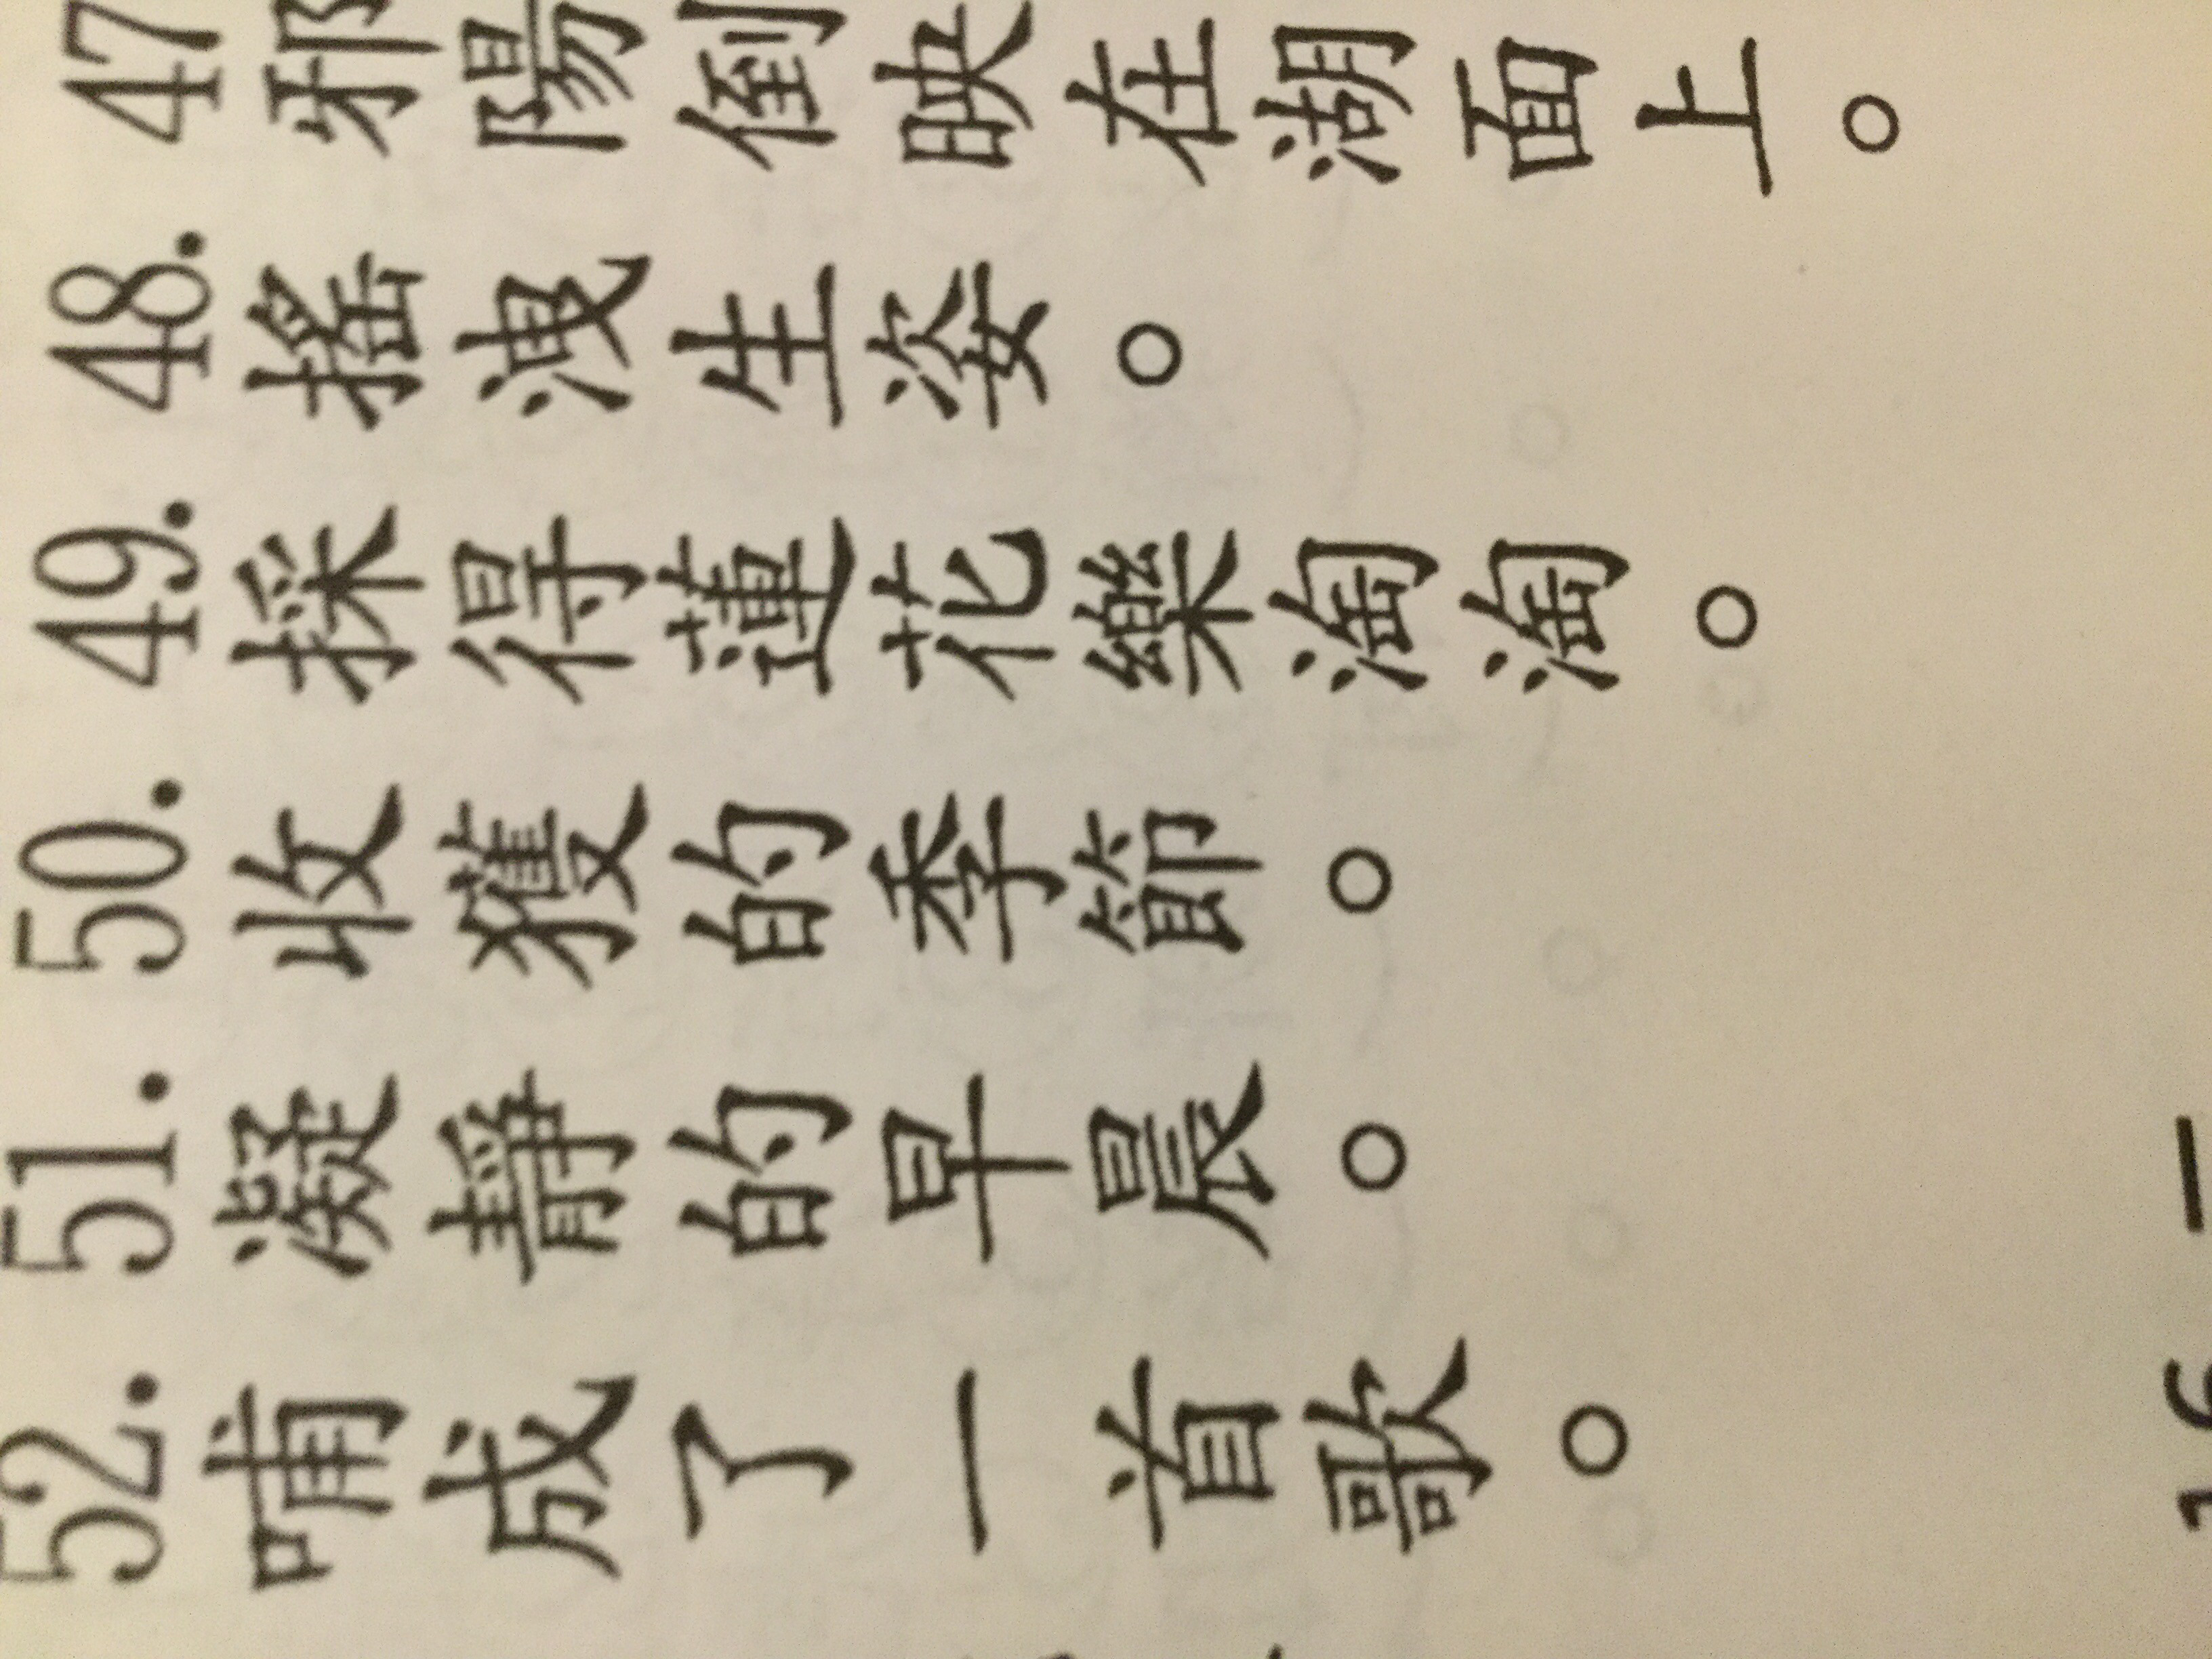 47 邪陽倒映在湖面上。
48. 搖洩生姿。
49. 採得蓮花樂淘淘。
50. 收獲的季節。
51. 凝靜的早晨。
52. 哺成了一首歌。
16 —